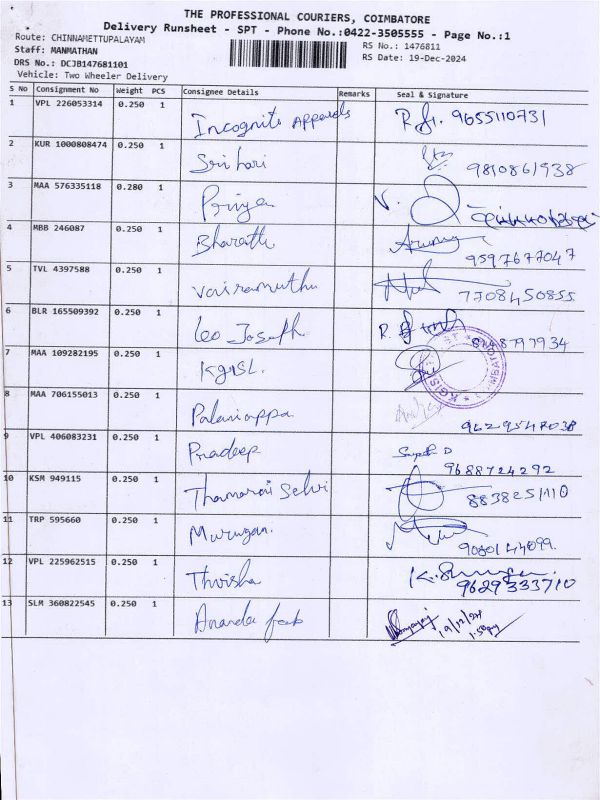 THE PROFESSIONAL COURIERS, COIMBATORE
Delivery Runsheet - SPT - Phone No.:0422-3505555 - Page No.:1
Route: CHINNAMETTUPALAYAM
RS No.: 1476811
Staff: MANMATHAN
RS Date: 19-Dec-2024
DRS No.: DCJB147681101
Vehicle: Two Wheeler Delivery
S No Consignment No Weight PCS Consignee Details Remarks Seal & Signature
1 VPL 226053314 0.250 1 Incognito Apparels 9655110731
2 KUR 1000808474 0.250 1 Srihari 9810861938
3 MAA 576335118 0.280 1 Priya
4 MBB 246087 0.250 1 Bharath 9597677047
5 TVL 4397588 0.250 1 Vairamuthu 7708450855
6 BLR 165509392 0.250 1 Leo Joseph
7 MAA 109282195 0.250 1 KGISL.
8 MAA 706155013 0.250 1 Palaniappa
9 VPL 406083231 0.250 1 Pradeep 9688724292
10 KSM 949115 0.250 1 Thamarai Selvi
11 TRP 595660 0.250 1 Murugan.
12 VPL 225962515 0.250 1 Thrisha 9629333710
13 SLM 360822545 0.250 1 Ananda 19/12/24